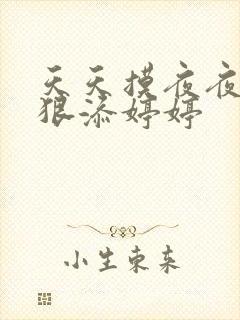 天天摸夜夜
狠添婷婷
小生东来